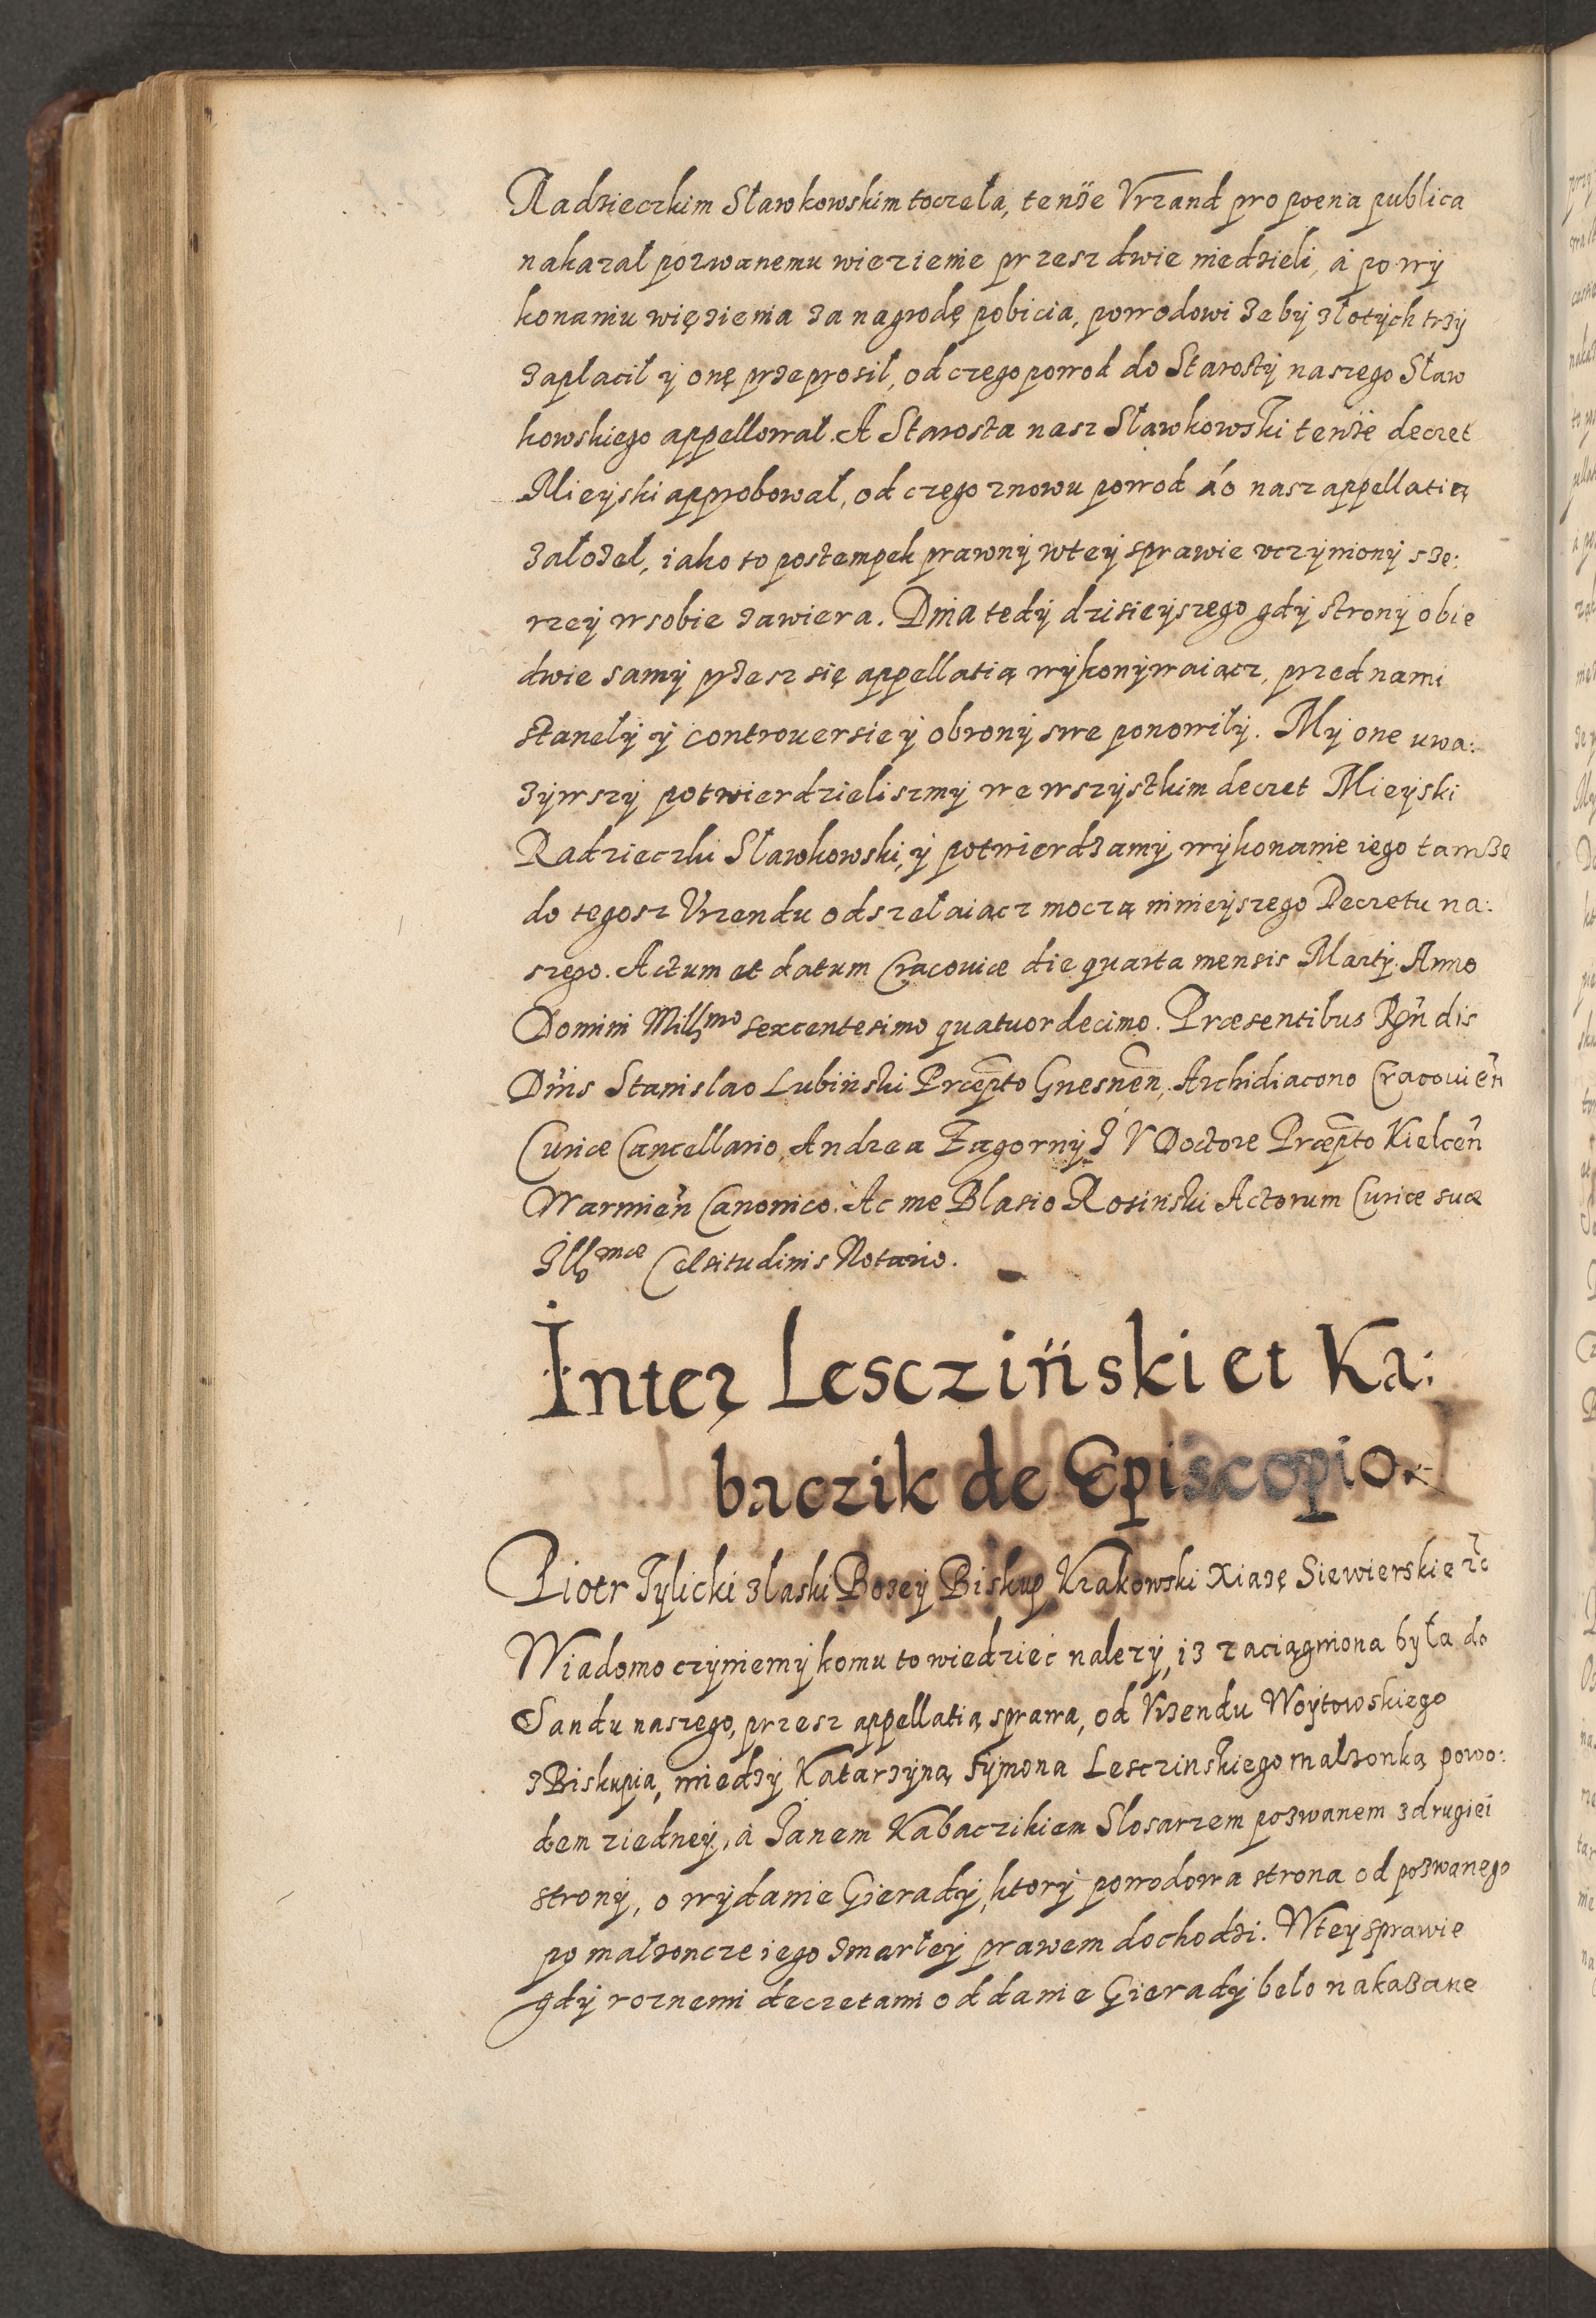 Radzieczkim Sławkowskim toczeła, tenże Vrzand pro poena publica
nakazał pozwanemu wiezienie przesz dwie niedzieli, á po wÿ
konaniu więzienia za nagrodę pobicia, powodowi zebÿ złotÿch trzÿ
zapłacił ÿ onę przeprosił, od czego powod do Starostÿ naszego Sław
kowskiego appellował. A Starosta nasz Sławkowski tenże decret
Mieÿski approbował, od czego znowu powod do nasz appellatię
założeł, iako to postempek prawnÿ w teÿ sprawie vczÿnionÿ sze:
rzeÿ w sobie zawiera. Dnia tedÿ dzisieÿszego gdÿ stronÿ obie
dwie samÿ przesz się appellatią wÿkonÿwaiącz, przed nami
stanełÿ ÿ controuersie ÿ obronÿ swe ponowiłÿ. Mÿ one uwa:
zÿwszÿ potwierdzieliszmÿ we wszÿstkim decret Mieÿski
Radzieczki Sławkowski, ÿ potwierdzamÿ wÿkonanie iego tamze
do tegosz Vrzendu odszełaiącz moczą ninieÿszego Decretu na:
szego. Actum et datum Cracouiæ die quarta mensis Martÿ. Anno
Domini Mill̃mo sexcentesimo quatuordecimo. Præsentibus Rñdis
Dñis Stanislao Lubiński Præpto Gnesnen̄, Archidiacono Cracouien̄
Curiæ Cancellario, Andrea Zagornÿ I V Doctore Præpto Kielcen̄
Warmien̄ Canonico. Ac me Blasio Rosiński Actorum Curiæ suæ
Illmæ Celsitudinis Notario.
Inter Lescziński et Ka:
baczik de Episcopio.
Piotr Tÿlicki z łaski Bozeÿ Biskup Krakowski Xiążę Siewierskie ec̃
Wiadomo czÿniemÿ komu to wiedzieć nalezÿ, iz zaciągniona bÿła do
Sandu naszego, przesz appellatią sprawa, od Vrzendu Woÿtowskiego
z Biskupia, miedzÿ Katarzÿną Sÿmona Lesczinskiego małzonką powo:
dem z iedneÿ, á Janem Kabaczikiem Slosarzem pozwanem z drugiei
stronÿ, o wÿdanie Gieradÿ, ktorÿ powodowa strona od pozwanego
po małzoncze iego zmarłeÿ prawem dochodzi. W teÿ sprawie
gdÿ roznemi decretami oddanie Gieradÿ beło nakazane